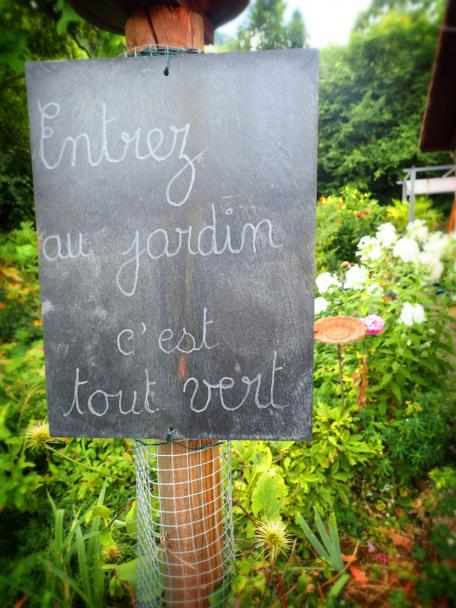 Entrez
au jardin
c'est
tout vert